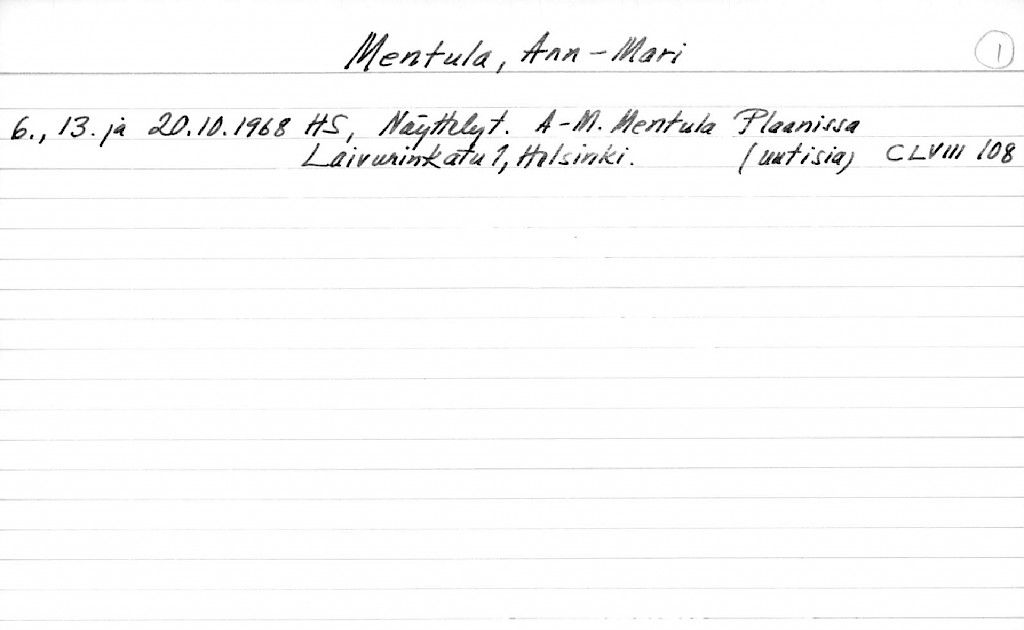 Mentula, Ann-Mari 1
6., 13. ja 20.10.1968 HS, Näyttelyt. A-M. Mentula Plaanissa
Laivurinkatu 1, Helsinki. (uutisia) CLVIII 108